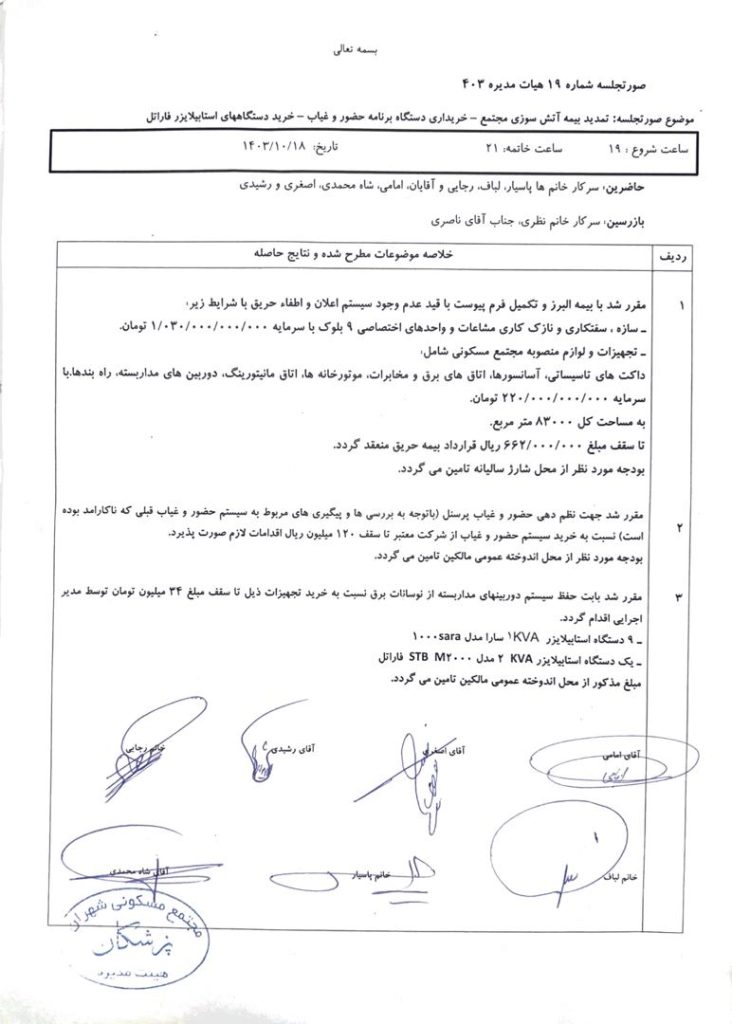 بسمه تعالی
صورتجلسه شماره ۱۹ هیات مدیره ۴۰۳
موضوع صورتجلسه: تمدید بیمه آتش سوزی مجتمع – خریداری دستگاه برنامه حضور و غیاب – خرید دستگاههای استابیلایزر فاراتل
ساعت شروع : ۱۹ ساعت خاتمه: ۲۱ تاریخ: ۱۴۰۳/۱۰/۱۸
حاضرین: سرکار خانم ها پاسیار، لباف، رجایی و آقایان، امامی، شاه محمدی، اصغری و رشیدی
بازرسین: سرکار خانم نظری، جناب آقای ناصری
ردیف خلاصه موضوعات مطرح شده و نتایج حاصله
۱ مقرر شد با بیمه البرز و تکمیل فرم پیوست با قید عدم وجود سیستم اعلان و اطفاء حریق با شرایط زیر:
ـ سازه ، سفتکاری و نازک کاری مشاعات و واحدهای اختصاصی ۹ بلوک با سرمایه ۱/۰۳۰/۰۰۰/۰۰۰/۰۰۰ تومان.
ـ تجهیزات و لوازم منصوبه مجتمع مسکونی شامل:
داکت های تاسیساتی، آسانسورها، اتاق های برق و مخابرات، موتورخانه ها، اتاق مانیتورینگ، دوربین های مداربسته، راه بندها.با
سرمایه ۲۲۰/۰۰۰/۰۰۰/۰۰۰ تومان.
به مساحت کل ۸۳۰۰۰ متر مربع.
تا سقف مبلغ ۶۶۲/۰۰۰/۰۰۰ ریال قرارداد بیمه حریق منعقد گردد.
بودجه مورد نظر از محل شارژ سالیانه تامین می گردد.
۲ مقرر شد جهت نظم دهی حضور و غیاب پرسنل (باتوجه به بررسی ها و پیگیری های مربوط به سیستم حضور و غیاب قبلی که ناکارامد بوده
است) نسبت به خرید سیستم حضور و غیاب از شرکت معتبر تا سقف ۱۲۰ میلیون ریال اقدامات لازم صورت پذیرد.
بودجه مورد نظر از محل اندوخته عمومی مالکین تامین می گردد.
۳ مقرر شد بابت حفظ سیستم دوربینهای مداربسته از نوسانات برق نسبت به خرید تجهیزات ذیل تا سقف مبلغ ۳۴ میلیون تومان توسط مدیر
اجرایی اقدام گردد.
ـ ۹ دستگاه استابیلایزر ۱KVA سارا مدل ۱۰۰۰sara
ـ یک دستگاه استابیلایزر ۲ KVA مدل STB M۲۰۰۰ فاراتل
مبلغ مذکور از محل اندوخته عمومی مالکین تامین می گردد.
آقای امامی آقای اصغری آقای رشیدی خانم رجایی
خانم لباف خانم پاسیار آقای شاه محمدی
مجتمع مسکونی شهران
پزشکان
هیئت مدیره